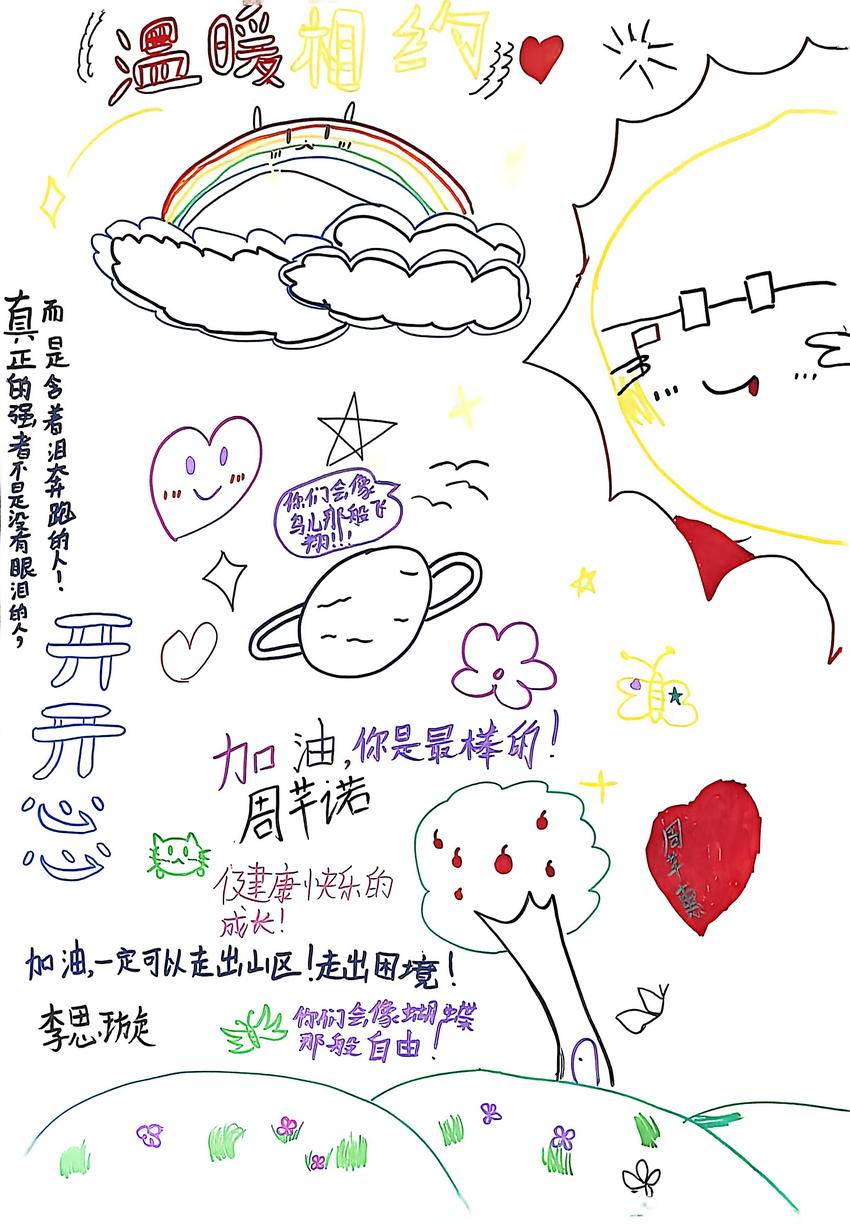 温暖相约
真正的强者不是没有眼泪的人，
而是含着泪奔跑的人！
你们会像
鸟儿那般飞
翔!!!
开
开
心
心
加油,你是最棒的!
周芊诺
健康快乐的
成长!
周芊
加油,一定可以走出山区!走出困境!
李思璇
你们会像蝴蝶
那般自由!